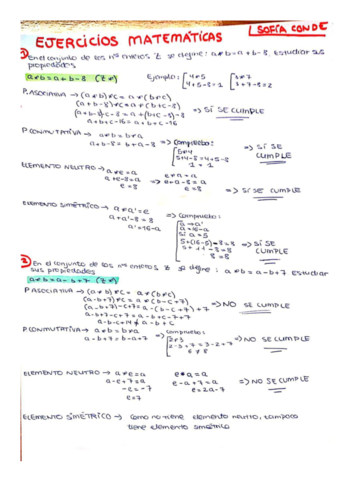 SOFÍA CONDE
EJERCICIOS MATEMÁTICAS
① En el conjunto de los nº enteros Z se define: a*b=a+b-8. Estudiar sus
propiedades
a*b=a+b-8 (Z*)
Ejemplo:
4*5
4+5-8=1
3*7
3+7-8=2
P. ASOCIATIVA → (a*b)*c = a*(b*c)
(a+b-8)*c = a*(b+c-8)
(a+b-8)+c-8 = a+(b+c-8)-8
a+b+c-16=a+b+c-16
=> SÍ SE CUMPLE
P. CONMUTATIVA → a*b=b*a
a+b-8=b+a-8
=> Compruebo:
5*4
5+4-8=4+5-8
1=1
=> SÍ SE
CUMPLE
ELEMENTO NEUTRO → a*e=a
a+e-8=a
e=8
e*a=a
=> e+a-8=a
e=8
=> SÍ SE CUMPLE
ELEMENTO SIMÉTRICO → a*a'=e
a+a'-8=8
a'=16-a
=> Compruebo:
a→a'
a→16-a
Si a=5
5+(16-5)-8=8
5+11-8=8
8=8
=> SÍ SE
CUMPLE
② En el conjunto de los nº enteros Z se define: a*b=a-b+7 Estudiar
sus propiedades
a*b=a-b+7 (Z*)
P. ASOCIATIVA → (a*b)*c = a*(b*c)
(a-b+7)*c = a*(b-c+7)
(a-b+7)-c+7= a-(b-c+7)+7
a-b+7-c+7=a-b+c-7+7
a-b-c+14≠a-b+c
=> NO SE CUMPLE
P. CONMUTATIVA → a*b=b*a
a-b+7=b-a+7
=> Compruebo:
2*3
2-3+7=3-2+7
6≠8
=> NO SE CUMPLE
ELEMENTO NEUTRO → a*e=a
a-e+7=a
-e=-7
e=7
e*a=a
e-a+7=a
e=2a-7
=> NO SE
CUMPLE
ELEMENTO SIMÉTRICO → como no tiene elemento neutro, tampoco
tiene elemento simétrico